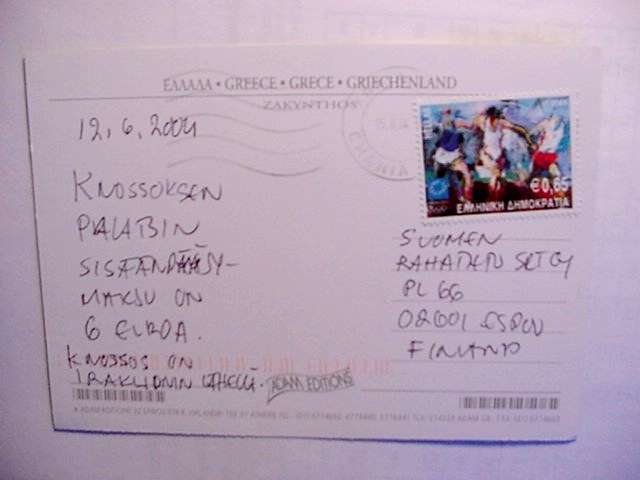 ΕΛΛΑΔΑ • GREECE • GRECE • GRIECHENLAND
ZAKYNTHOS
12.6.2004
KNOSSOKSEN
PALATSIN
SISÄÄNPÄÄSY-
MAKSU ON
6 EUROA.
KNOSSOS ON
IRAKLIONIN
ADAM EDITIONS
€0,65
ΕΛΛΗΝΙΚΗ ΔΗΜΟΚΡΑΤΙΑ
SUOMEN
RAHATIETO
PL 66
02601 ESPOO
FINLAND